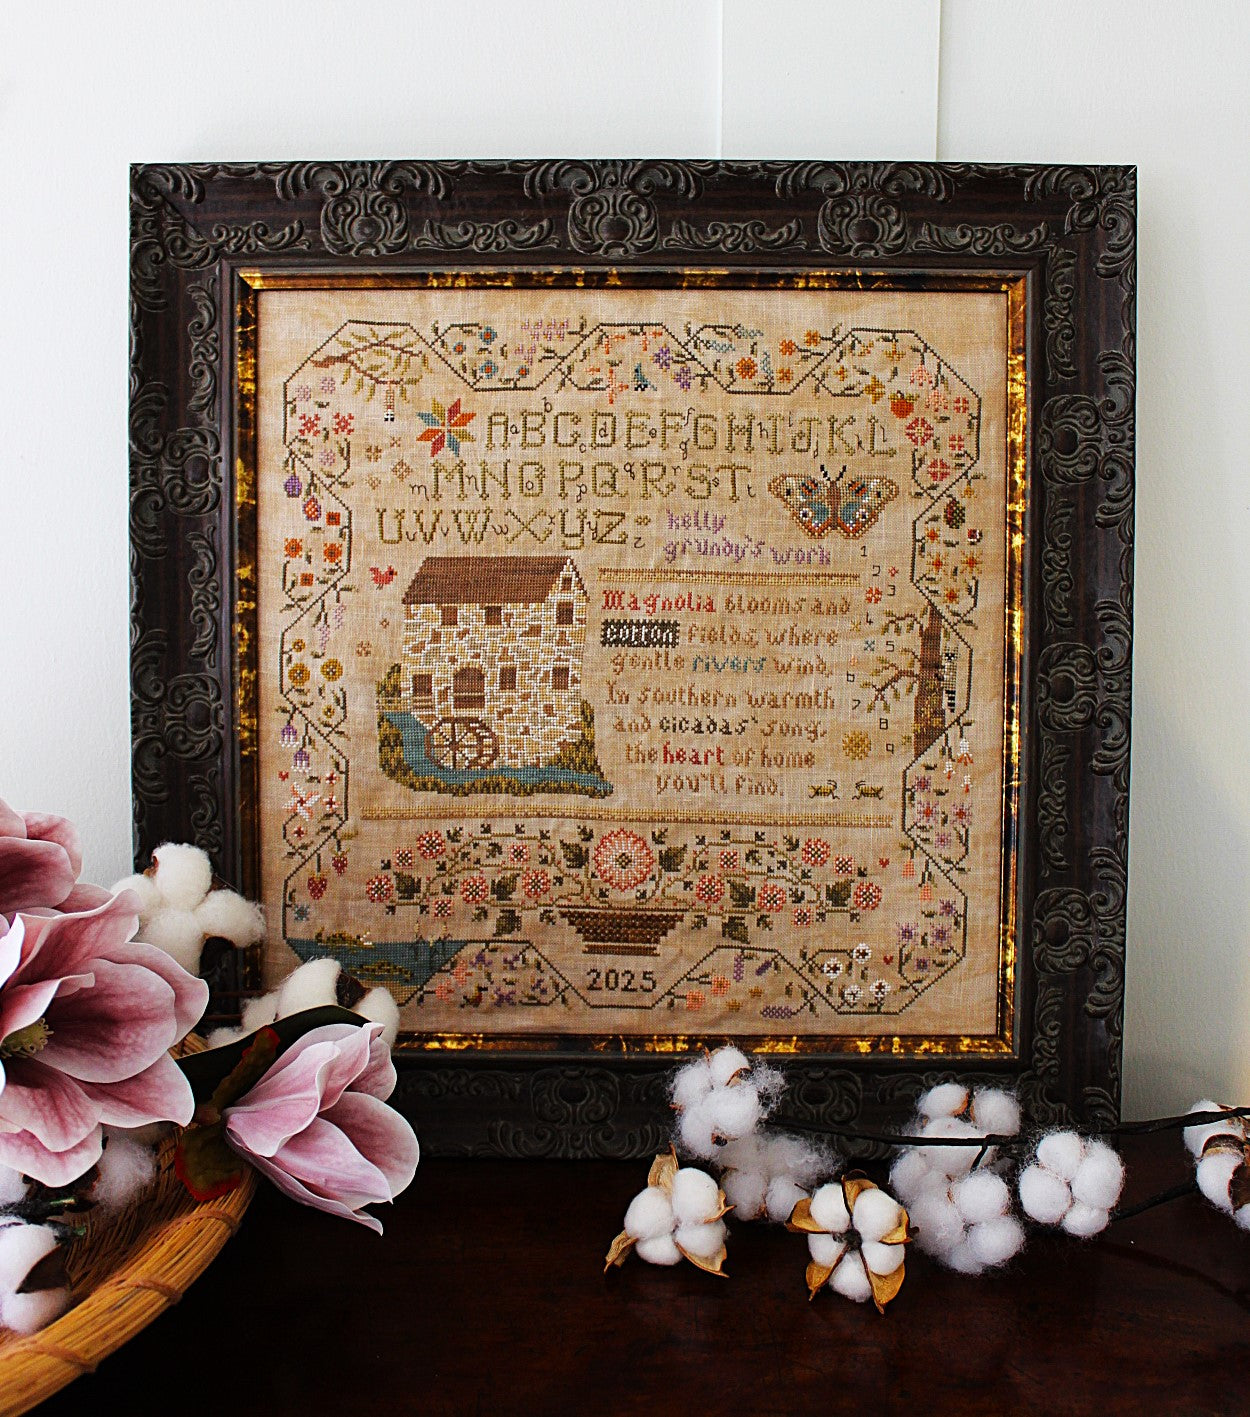 A a B b C c D d E e F f G g H h I i J j K k L l
m M n N o O p P q Q r R s S t T
U u V v W w X x Y y Z z
kelly
grundy's work
1
2
3
4
5
6
7
8
9
Magnolia blooms and
cotton fields, where
gentle rivers wind,
In southern warmth
and cicadas' song,
the heart of home
you'll find.
2025